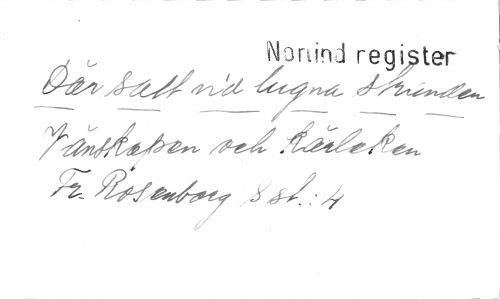 Norlind register
Där satt vid lugna stranden
Vänskapen och kärleken
Fr. Rosenborg 8 st.: 4